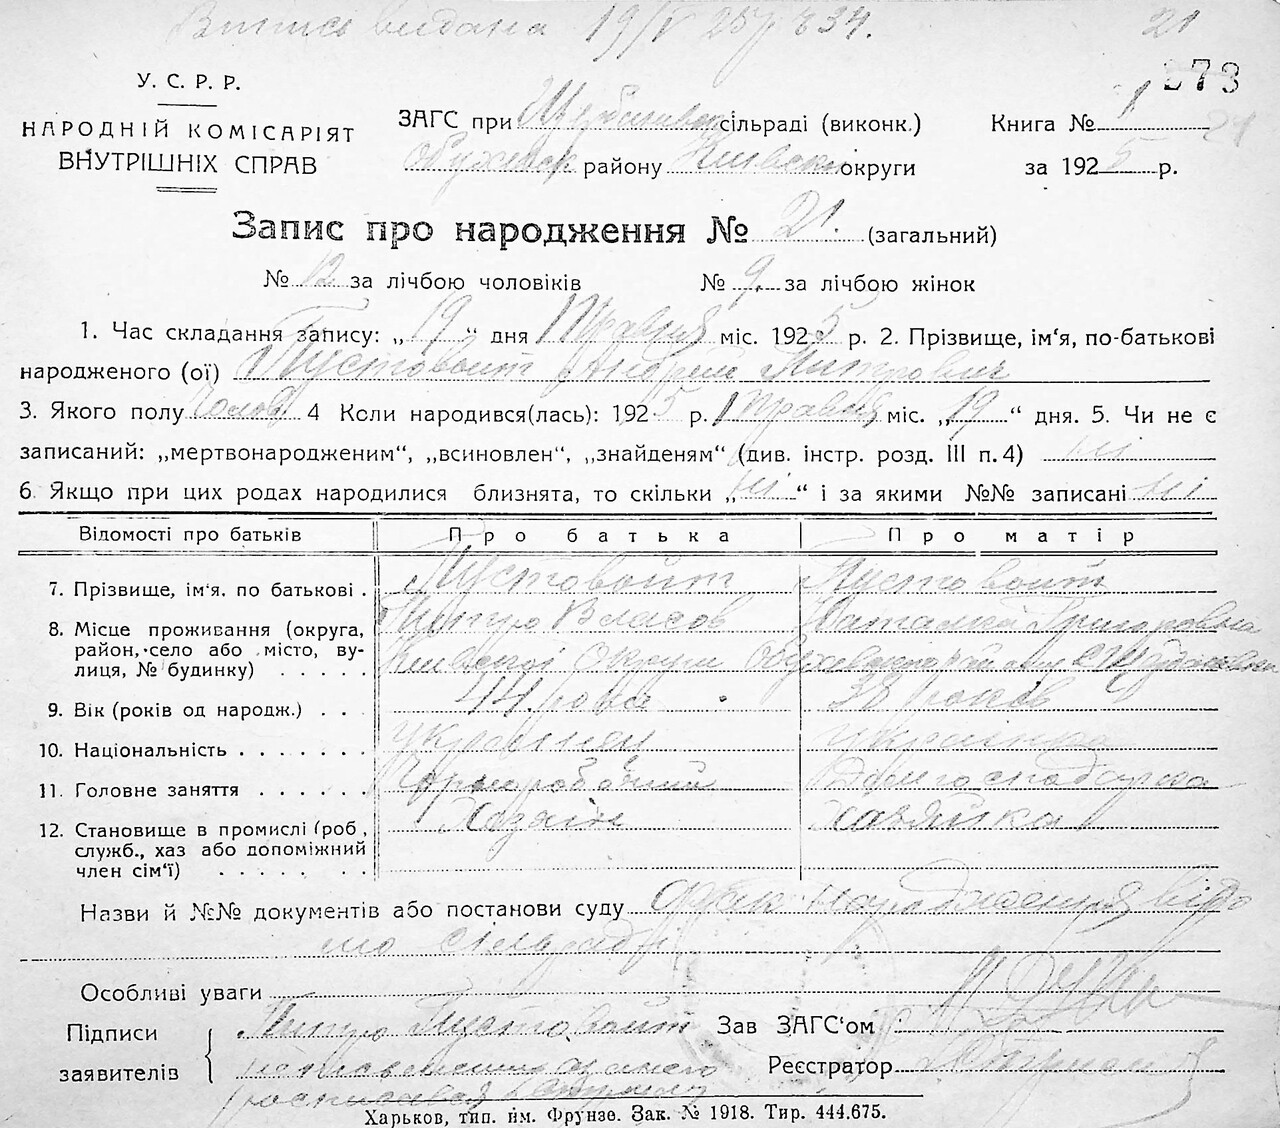 Випись видана 19/V 25 р. № 34. 21
273
У. С. Р. Р.
НАРОДНІЙ КОМІСАРІЯТ
ВНУТРІШНІХ СПРАВ
ЗАГС при сільраді (виконк.) Книга № 1
району округи за 1925 р.
Запис про народження № 21. (загальний)
№ 12 за лічбою чоловіків № 9 за лічбою жінок
1. Час складання запису: „19“ дня Травня міс. 1925 р. 2. Прізвище, ім‘я, по-батькові
народженого (ої) Пустовойт Андрій Митрович
3. Якого полу Чолов 4 Коли народився(лась): 1925 р. Травня міс. „19“ дня. 5. Чи не є
записаний: „мертвонародженим“, „всиновлен“, „знайденям“ (див. інстр. розд. III п. 4) ні
6. Якщо при цих родах народилися близнята, то скільки „ні“ і за якими №№ записані ні
Відомості про батьків Про батька Про матір
7. Прізвище, ім‘я, по батькові . Пустовойт Пустовойт
Митро Власов Наталка Григоровна
8. Місце проживання (округа,
район, село або місто, ву-
лиця, № будинку) . . . . . Київської Округи Обухівського
9. Вік (років од народж.) . . . 44 роки 38 років
10. Національність . . . . . . . Українец Українка
11. Головне заняття . . . . . . Чорноробочий Домогосподарка
12. Становище в промислі (роб.,
служб., хаз або допоміжний
член сім‘ї) . . . . . . Хазяін Хазяйка
Назви й №№ документів або постанови суду факт народження відо
мо сільраді
Особливі уваги
Підписи
заявителів
Митро Пустовойт
Зав ЗАГС‘ом
Реєстратор
Харьков, тип. им. Фрунзе. Зак. № 1918. Тир. 444.675.